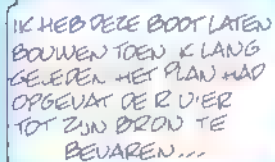 IK HEB DEZE BOOT LATEN
BOUWEN TOEN IK LANG
GELEDEN HET PLAN HAD
OPGEVAT DE RIVIER
TOT ZIJN BRON TE
BEVAREN...